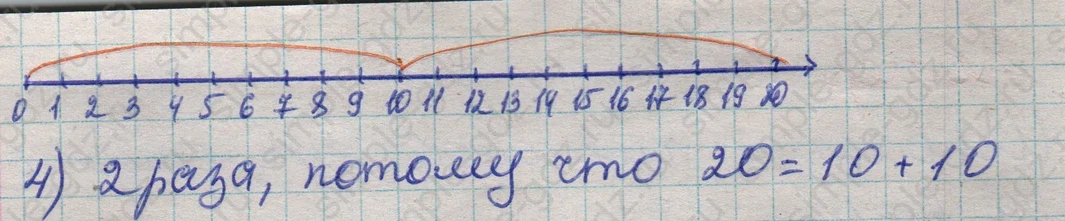 0 1 2 3 4 5 6 7 8 9 10 11 12 13 14 15 16 17 18 19 20
4) 2 раза, потому что 20 = 10 + 10